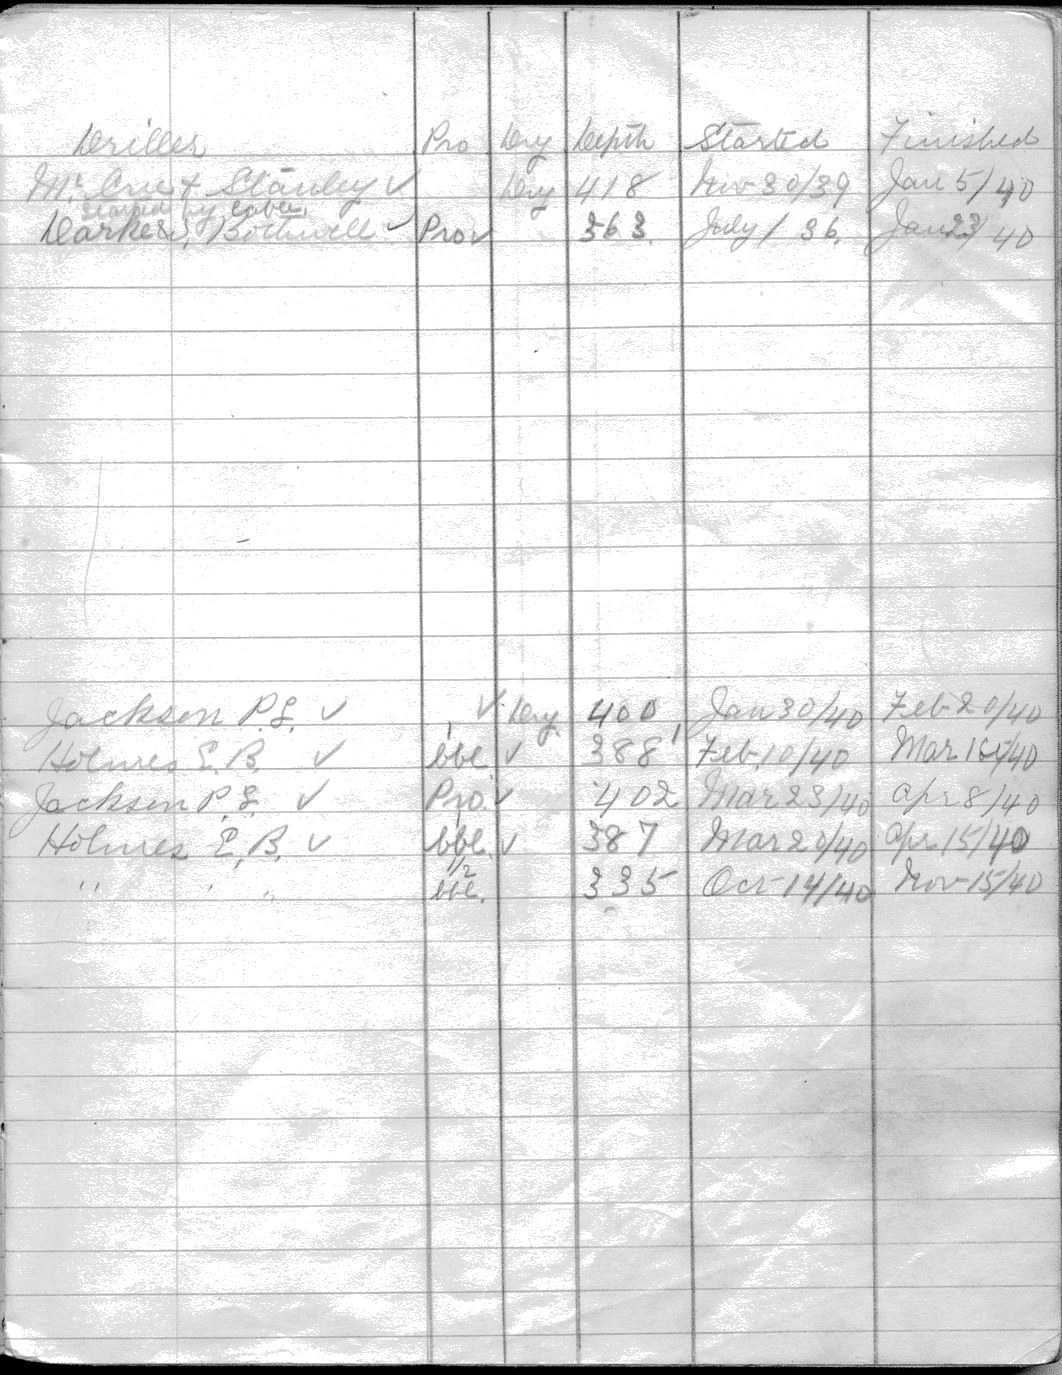 Driller Pro Dry Depth Started Finished
Mc Crie & Stanley ✓ Dry 418 Nov 30/39 Jan 5/40
started by
Bothwell ✓ Pro ✓ 363. July / 36. Jan 23/40
Jackson P.L. ✓ ✓ Dry. 400 Jan 30/40 Feb 20/40
Holmes E.B. ✓ 1 bbl ✓ 388 Feb. 10/40 Mar /40
Jackson P.L. ✓ Pro. ✓ 402 Mar 23/40 Apr 8/40
Holmes E.B. ✓ bbl. ✓ 387 Mar 20/40 Apr 15/40
" " " 1/2 bbl. 335 Oct 14/40 Nov 15/40